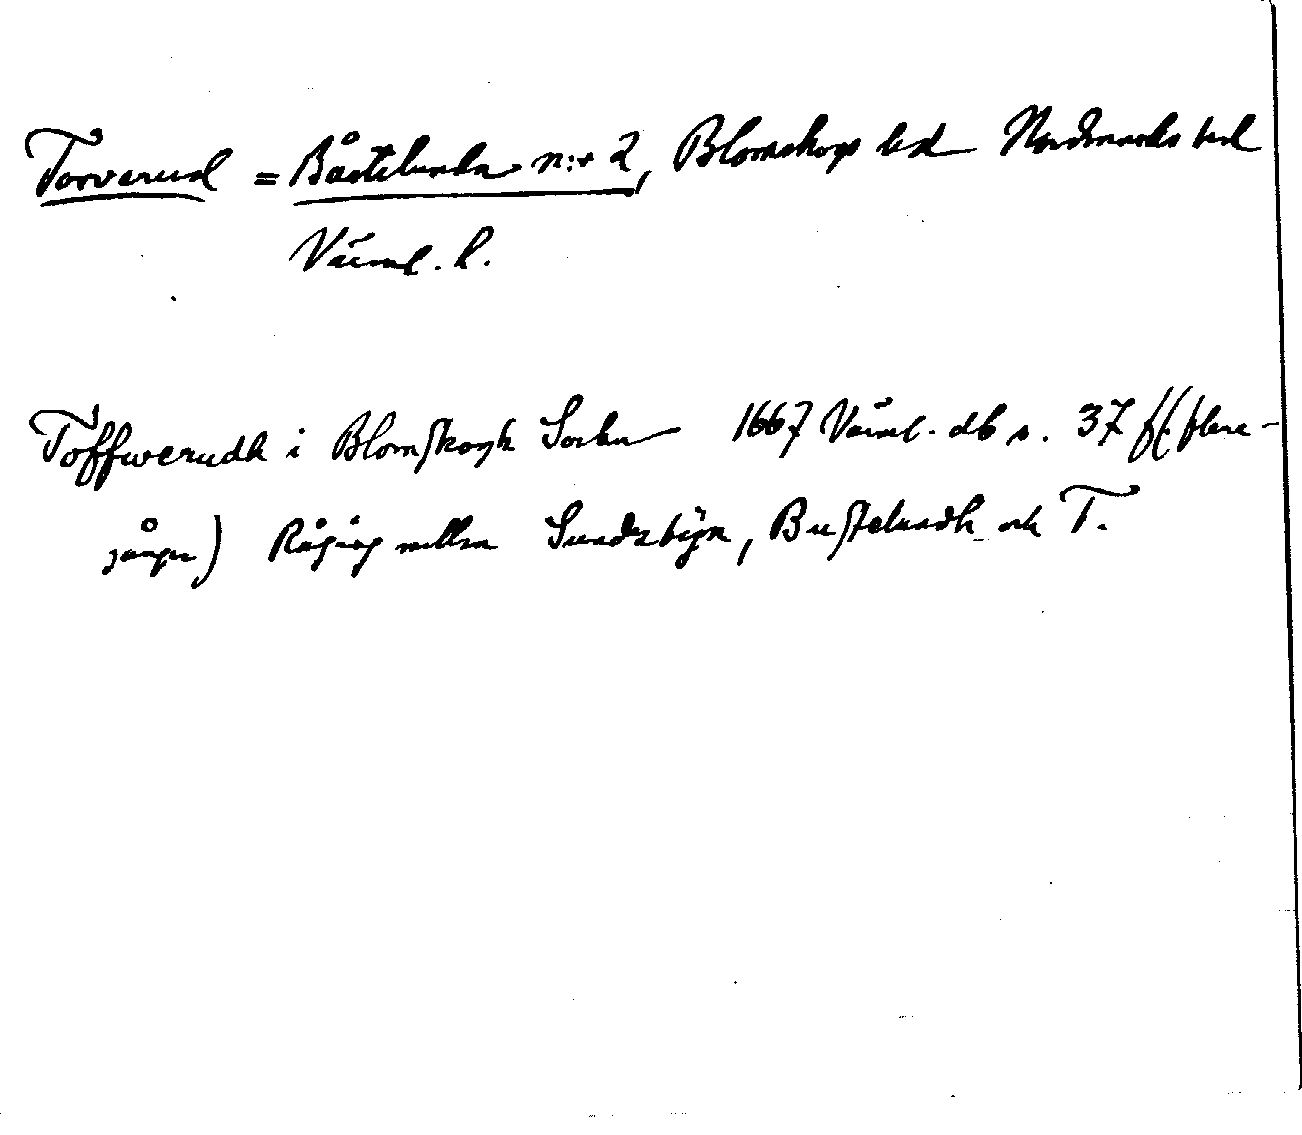 Torverud = Båstelunda n:r 2, Blomskogs sn Nordmarks hd
Värml. l.
Toffwerudh i Blomskogh Sochn 1667 Värml. db s. 37 ff (flere
gånger) Rågång mellan Sundsbÿn, Bustelundh och T.